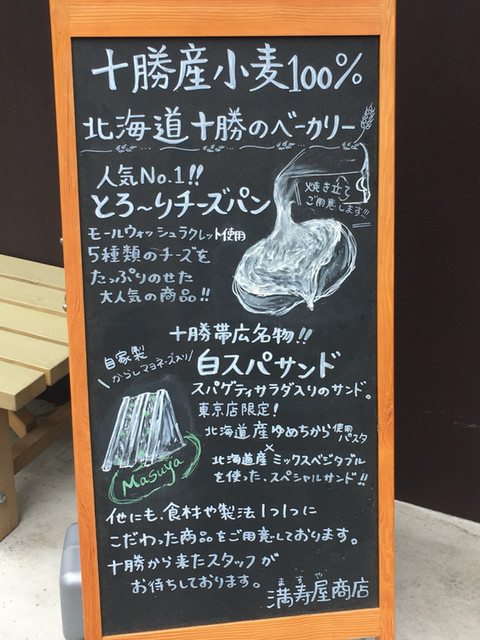 十勝産小麦100%
北海道十勝のベーカリー
人気No.1!!
とろ〜りチーズパン
モールウォッシュラクレット使用
5種類のチーズを
たっぷりのせた
大人気の商品!!
焼き立て
ご用意します!!!
十勝帯広名物!!
自家製
からしマヨネーズ入り
白スパサンド
スパゲティサラダ入りのサンド。
東京店限定!
北海道産ゆめちから使用パスタ
×
北海道産ミックスベジタブル
を使った、スペシャルサンド!!
Masuya
他にも、食材や製法1つ1つに
こだわった商品をご用意しております。
十勝から来たスタッフが
お待ちしております。
ますや
満寿屋商店